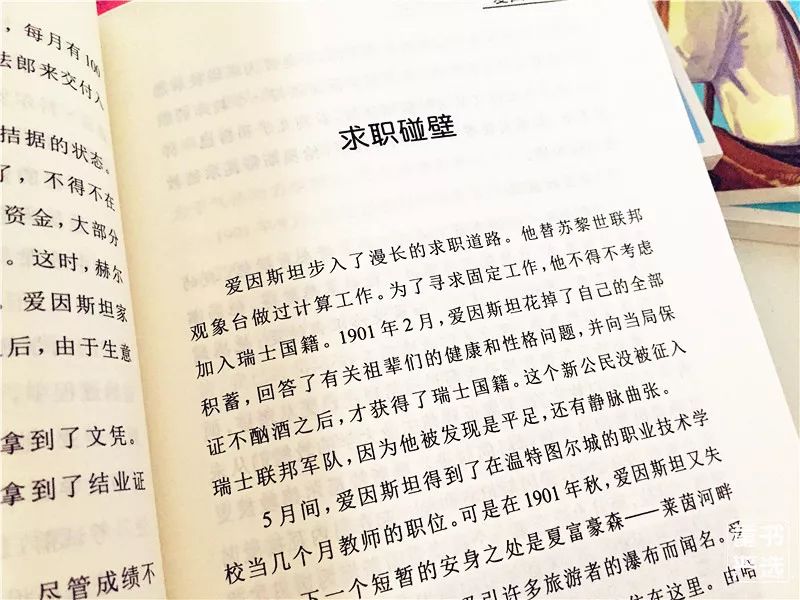 ，每月有100
法郎来交付入
拮据的状态。
了，不得不在
资金，大部分
。这时，赫尔
。爱因斯坦家
后，由于生意
拿到了文凭。
拿到了结业证
尽管成绩不
爱因
求职碰壁
爱因斯坦步入了漫长的求职道路。他替苏黎世联邦
观象台做过计算工作。为了寻求固定工作，他不得不考虑
加入瑞士国籍。1901年2月，爱因斯坦花掉了自己的全部
积蓄，回答了有关祖辈们的健康和性格问题，并向当局保
证不酗酒之后，才获得了瑞士国籍。这个新公民没被征入
瑞士联邦军队，因为他被发现是平足，还有静脉曲张。
5月间，爱因斯坦得到了在温特图尔城的职业技术学
校当几个月教师的职位。可是在1901年秋，爱因斯坦又失
下一个短暂的安身之处是夏富豪森——莱茵河畔
引许多旅游者的瀑布而闻名。爱
住在这里。由哈